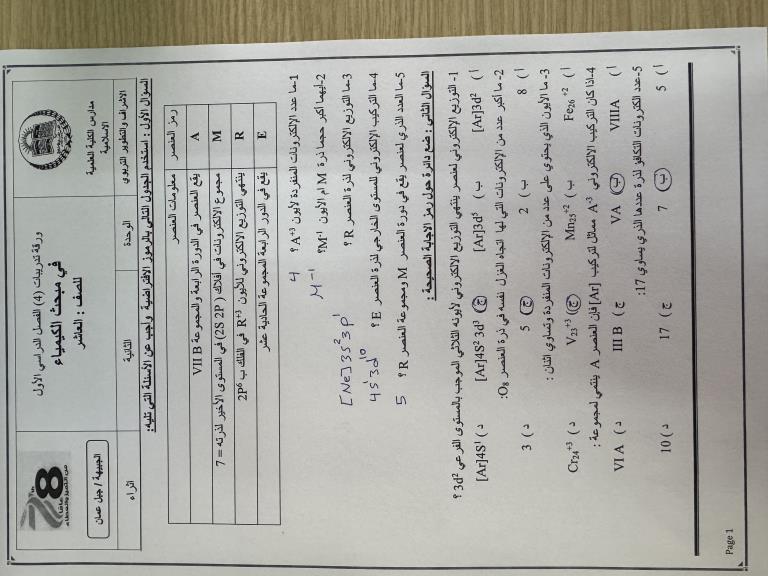 مدارس الكلية العلمية الاسلامية
الاشراف والتطوير التربوي
ورقة تدريبات (4) الفصل الدراسي الأول
في مبحث الكيمياء
للصف : العاشر
78
الجبيهة / جبل عمان
الوحدة
الثانية
اثراء
السؤال الأول : استخدم الجدول التالي بالرموز الافتراضية واجب عن الأسئلة التي تليه:
رمز العنصر معلومات العنصر
A يقع العنصر في الدورة الرابعة والمجموعة VII B
M مجموع الالكترونات في أفلاك ( 2S 2P) في المستوى الأخير لذرته = 7
R ينتهي التوزيع الالكتروني للأيون R+3 في الفلك ب 2P6
E يقع في الدور الرابعة المجموعة الحادية عشر
1-ما عدد الإلكترونات المنفردة لأيون A+3 ؟ 4
2-ايهما أكبر حجما ذرة M ام الأيون M-1؟ M-1
3-ما التوزيع الالكتروني لذرة العنصر R ؟ [Ne]3S2 3P1
4-ما التركيب الالكتروني للمستوى الخارجي لذرة العنصر E ؟ 4S1 3d10
5-ما العدد الذري لعنصر يقع في دورة العنصر M ومجموعة العنصر R ؟ 5
السؤال الثاني : ضع دائرة حول رمز الاجابة الصحيحة :
1- التوزيع الالكتروني لعنصر ينتهي التوزيع الالكتروني لأيونه الثلاثي الموجب بالمستوى الفرعي 3d2 ؟
أ ) [Ar]3d2 ب ) [Ar]3d5 ج ) [Ar]4S2 3d3 د ) [Ar]4S1
2- ما أكبر عدد من الإلكترونات التي لها اتجاه الغزل نفسه في ذرة العنصر O8:
أ ) 8 ب ) 2 ج ) 5 د ) 3
3- ما الأيون الذي يحتوي على عدد من الإلكترونات المنفردة وتساوي اثنان :
أ ) Fe26 +2 ب ) Mn25+2 ج ) V23+3 د ) Cr24+3
4-اذا كان التركيب الالكتروني A+3 مماثل لتركيب [Ar] فإن العنصر A ينتمي لمجموعة :
أ ) VIIIA ب ) VA ج ) III B د ) VI A
5-عدد الكترونات التكافؤ لذرة عددها الذري يساوي 17:
أ ) 5 ب ) 7 ج ) 17 د ) 10
Page 1